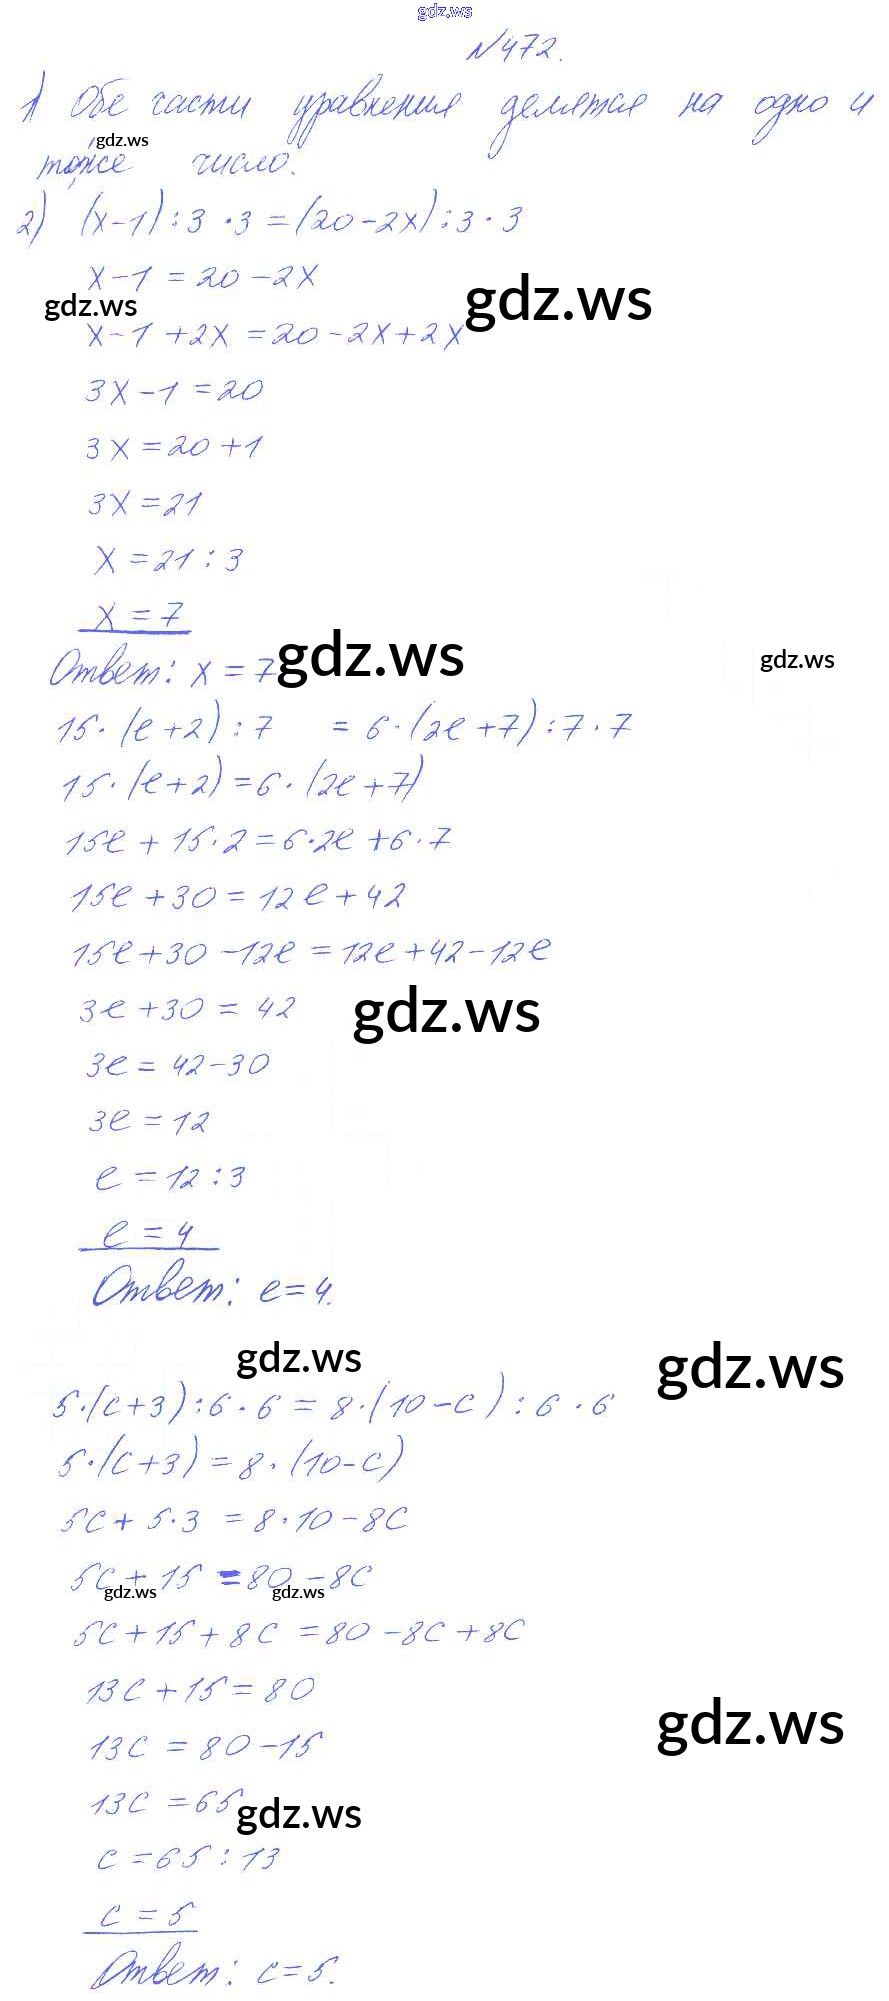 gdz.ws
N472.
1) Обе части уравнения делятся на одно и
тоже число.
gdz.ws
2) (x-1):3·3=(20-2x):3·3
x-1=20-2x
gdz.ws gdz.ws
x-1+2x=20-2x+2x
3x-1=20
3x=20+1
3x=21
x=21:3
x=7
Ответ: x=7
gdz.ws gdz.ws
15·(e+2):7 = 6·(2e+7):7·7
15·(e+2)=6·(2e+7)
15e+15·2=6·2e+6·7
15e+30=12e+42
15e+30-12e=12e+42-12e
3e+30=42
gdz.ws
3e=42-30
3e=12
e=12:3
e=4
Ответ: e=4.
gdz.ws gdz.ws
5·(c+3):6·6=8·(10-c):6·6
5·(c+3)=8·(10-c)
5c+5·3=8·10-8c
5c+15=80-8c
gdz.ws gdz.ws
5c+15+8c=80-8c+8c
13c+15=80
gdz.ws
13c=80-15
13c=65
gdz.ws
c=65:13
c=5
Ответ: c=5.